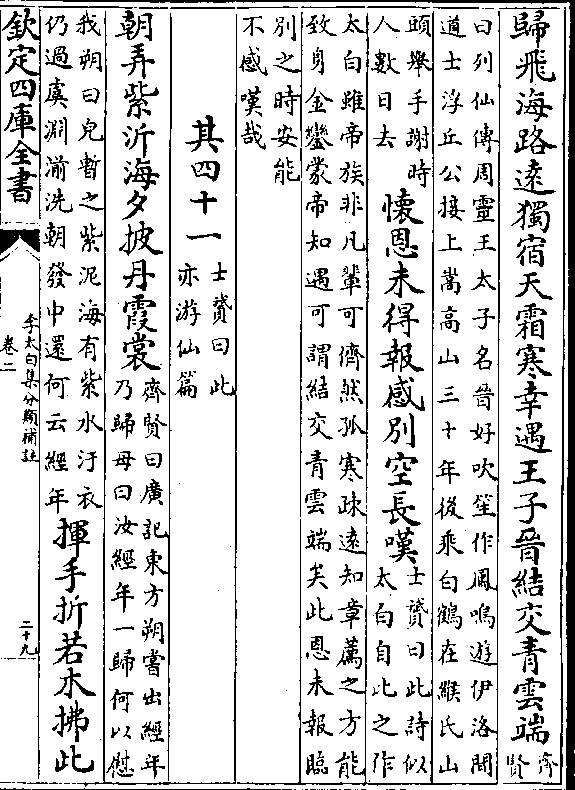 歸飛海路遠獨宿天霜寒幸遇王子晉結交青雲端齊賢
曰列仙傳周靈王太子名晉好吹笙作鳳鳴遊伊洛間
道士浮丘公接上嵩高山三十年後乘白鶴在緱氏山
頭舉手謝時
人數日去
懷恩未得報感別空長嘆
士贇曰此詩似
太白自此之作
太白雖帝族非凡輩可儕然孤寒疎遠知章薦之方能
致身金鑾蒙帝知遇可謂結交青雲端矣此恩未報臨
別之時安能
不感嘆哉
其四十一
士贇曰此
亦游仙篇
朝弄紫沂海夕披丹霞裳
齊賢曰廣記東方朔嘗出經年
乃歸母曰汝經年一歸何以慰
我朔曰兒暫之紫泥海有紫水汙衣
仍過虞淵湔洗朝發中還何云經年
揮手折若木拂此
欽定四庫全書
李太白集分類補註
卷二
二十九